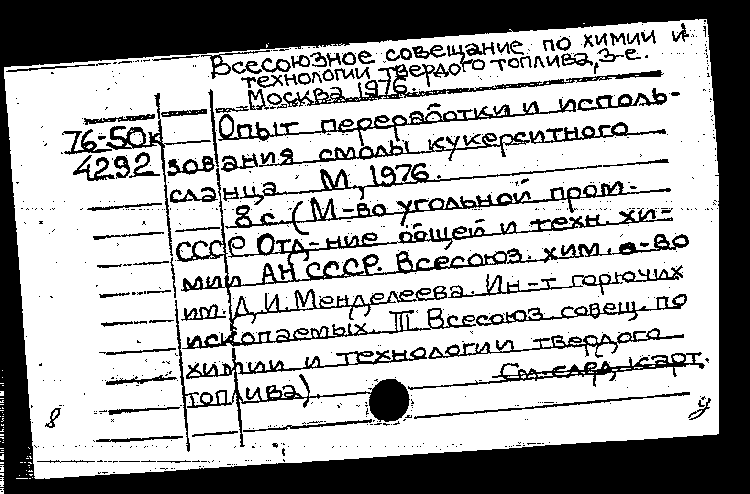 Всесоюзное совещание по химии и
технологии твердого топлива, 3-е.
Москва 1976.
76-50к Опыт переработки и исполь-
4292 зования смолы кукерситного
сланца. М., 1976.
8 с. (М-во угольной пром.
СССР Отд-ние общей и техн. хи-
мии АН СССР. Всесоюз. хим. о-во
им. Д.И. Менделеева. Ин-т горючих
ископаемых. III Всесоюз. совещ. по
химии и технологии твердого
топлива).
См. след. карт.
8
9